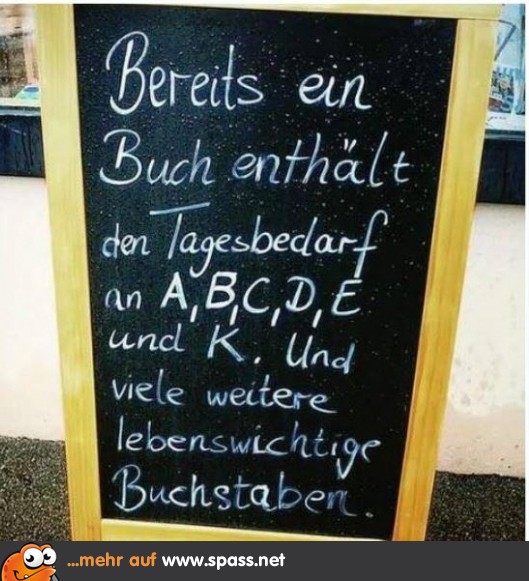 Bereits ein
Buch enthält
den Tagesbedarf
an A, B, C, D, E
und K. Und
viele weitere
lebenswichtige
Buchstaben.
...mehr auf www.spass.net